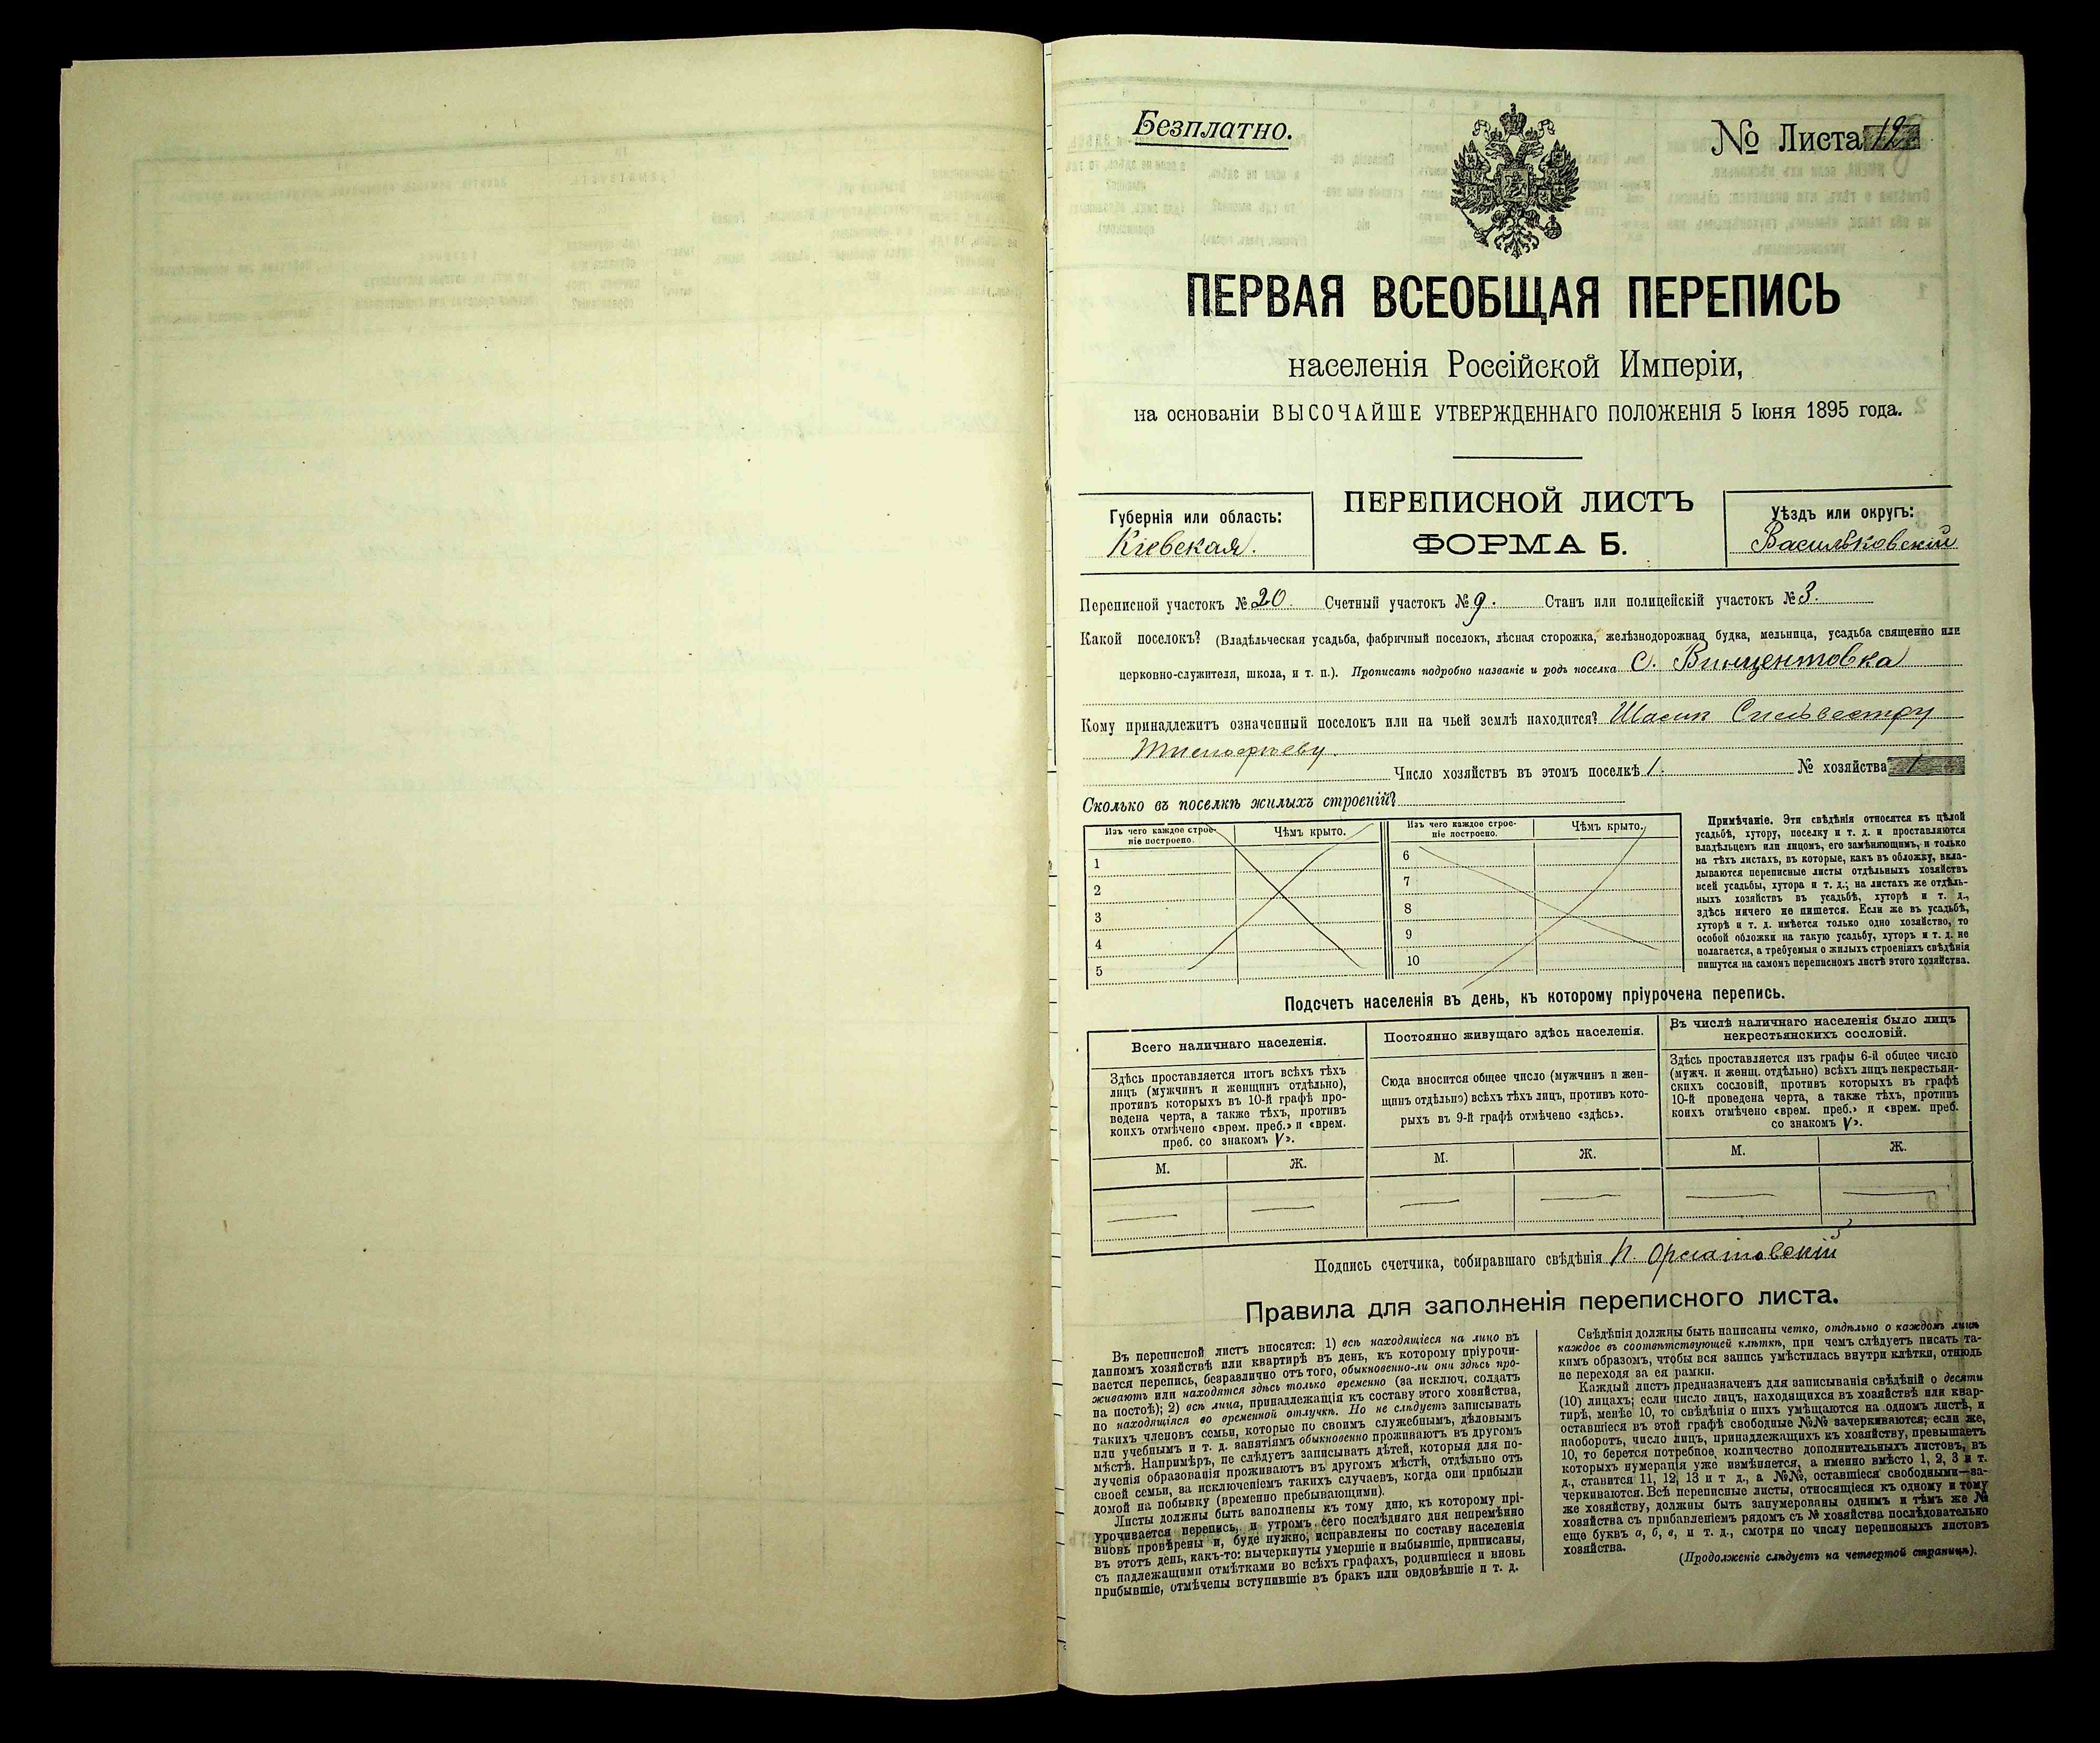 Безплатно.
№ Листа 12
ПЕРВАЯ ВСЕОБЩАЯ ПЕРЕПИСЬ
населенія Россійской Имперіи,
на основаніи ВЫСОЧАЙШЕ УТВЕРЖДЕННАГО ПОЛОЖЕНІЯ 5 Іюня 1895 года.
Губернія или область:
Кіевская.
ПЕРЕПИСНОЙ ЛИСТЪ
ФОРМА Б.
Уѣздъ или округъ:
Васильковскій
Переписной участокъ № 20. Счетный участокъ № 9. Станъ или полицейскій участокъ № 3.
Какой поселокъ? (Владѣльческая усадьба, фабричный поселокъ, лѣсная сторожка, желѣзнодорожная будка, мельница, усадьба священно или
церковно-служителя, школа, и т. п.). Прописать подробно названіе и родъ поселка С. Винцентовка
Кому принадлежитъ означенный поселокъ или на чьей землѣ находится? Сильвестру
Число хозяйствъ въ этомъ поселкѣ 1. № хозяйства 1
Сколько въ поселкѣ жилыхъ строеній?
Изъ чего каждое строе-
ніе построено.
Чѣмъ крыто.
Изъ чего каждое строе-
ніе построено.
Чѣмъ крыто.
1
2
3
4
5
6
7
8
9
10
Примѣчаніе. Эти свѣдѣнія относятся къ цѣлой
усадьбѣ, хутору, поселку и т. д. и проставляются
владѣльцемъ или лицомъ, его замѣняющимъ, и только
на тѣхъ листахъ, въ которые, какъ въ обложку, вкла-
дываются переписные листы отдѣльныхъ хозяйствъ
всей усадьбы, хутора и т. д.; на листахъ же отдѣль-
ныхъ хозяйствъ въ усадьбѣ, хуторѣ и т. д.,
здѣсь ничего не пишется. Если же въ усадьбѣ,
хуторѣ и т. д. имѣется только одно хозяйство, то
особой обложки на такую усадьбу, хуторъ и т. д. не
полагается, а требуемыя о жилыхъ строеніяхъ свѣдѣнія
пишутся на самомъ переписномъ листѣ этого хозяйства.
Подсчетъ населенія въ день, къ которому пріурочена перепись.
Всего наличнаго населенія.
Здѣсь проставляется итогъ всѣхъ тѣхъ
лицъ (мужчинъ и женщинъ отдѣльно),
противъ которыхъ въ 10-й графѣ про-
ведена черта, а также тѣхъ, противъ
коихъ отмѣчено «врем. преб.» и «врем.
преб. со знакомъ V».
М. Ж.
Постоянно живущаго здѣсь населенія.
Сюда вносится общее число (мужчинъ и жен-
щинъ отдѣльно) всѣхъ тѣхъ лицъ, противъ кото-
рыхъ въ 9-й графѣ отмѣчено «здѣсь».
М. Ж.
Въ числѣ наличнаго населенія было лицъ
некрестьянскихъ сословій.
Здѣсь проставляется изъ графы 6-й общее число
(мужч. и женщ. отдѣльно) всѣхъ лицъ некрестьян-
скихъ сословій, противъ которыхъ въ графѣ
10-й проведена черта, а также тѣхъ, противъ
коихъ отмѣчено «врем. преб.» и «врем. преб.
со знакомъ V».
М. Ж.
Подпись счетчика, собиравшаго свѣдѣнія
Правила для заполненія переписного листа.
Въ переписной листъ вносятся: 1) всѣ находящіеся на лицо въ
данномъ хозяйствѣ или квартирѣ въ день, къ которому пріурочи-
вается перепись, безразлично отъ того, обыкновенно-ли они здѣсь про-
живаютъ или находятся здѣсь только временно (за исключ. солдатъ
на постоѣ); 2) всѣ лица, принадлежащія къ составу этого хозяйства,
но находящіяся во временной отлучкѣ. Но не слѣдуетъ записывать
такихъ членовъ семьи, которые по своимъ служебнымъ, дѣловымъ
или учебнымъ и т. д. занятіямъ обыкновенно проживаютъ въ другомъ
мѣстѣ. Напримѣръ, не слѣдуетъ записывать дѣтей, которыя для по-
лученія образованія проживаютъ въ другомъ мѣстѣ, отдѣльно отъ
своей семьи, за исключеніемъ такихъ случаевъ, когда они прибыли
домой на побывку (временно пребывающими).
Листы должны быть заполнены къ тому дню, къ которому прі-
урочивается перепись, и утромъ сего послѣдняго дня непремѣнно
вновь провѣрены и, буде нужно, исправлены по составу населенія
въ этотъ день, какъ-то: вычеркнуты умершіе и выбывшіе, приписаны,
съ надлежащими отмѣтками во всѣхъ графахъ, родившіеся и вновь
прибывшіе, отмѣчены вступившіе въ бракъ или овдовѣвшіе и т. д.
Свѣдѣнія должны быть написаны четко, отдѣльно о каждомъ лицѣ
каждое въ соотвѣтствующей клѣткѣ, при чемъ слѣдуетъ писать та-
кимъ образомъ, чтобы вся запись умѣстилась внутри клѣтки, отнюдь
не переходя за ея рамки.
Каждый листъ предназначенъ для записыванія свѣдѣній о десяти
(10) лицахъ; если число лицъ, находящихся въ хозяйствѣ или квар-
тирѣ, менѣе 10, то свѣдѣнія о нихъ умѣщаются на одномъ листѣ, и
оставшіеся въ этой графѣ свободные №№ зачеркиваются; если же,
наоборотъ, число лицъ, принадлежащихъ къ хозяйству, превышаетъ
10, то берется потребное количество дополнительныхъ листовъ, въ
которыхъ нумерація уже измѣняется, а именно вмѣсто 1, 2, 3 и т.
д., ставится 11, 12, 13 и т д., а №№, оставшіеся свободными—за-
черкиваются. Всѣ переписные листы, относящіеся къ одному и тому
же хозяйству, должны быть занумерованы однимъ и тѣмъ же №
хозяйства съ прибавленіемъ рядомъ съ № хозяйства послѣдовательно
еще буквъ а, б, в, и т. д., смотря по числу переписныхъ листовъ
хозяйства.
(Продолженіе слѣдуетъ на четвертой страницѣ).